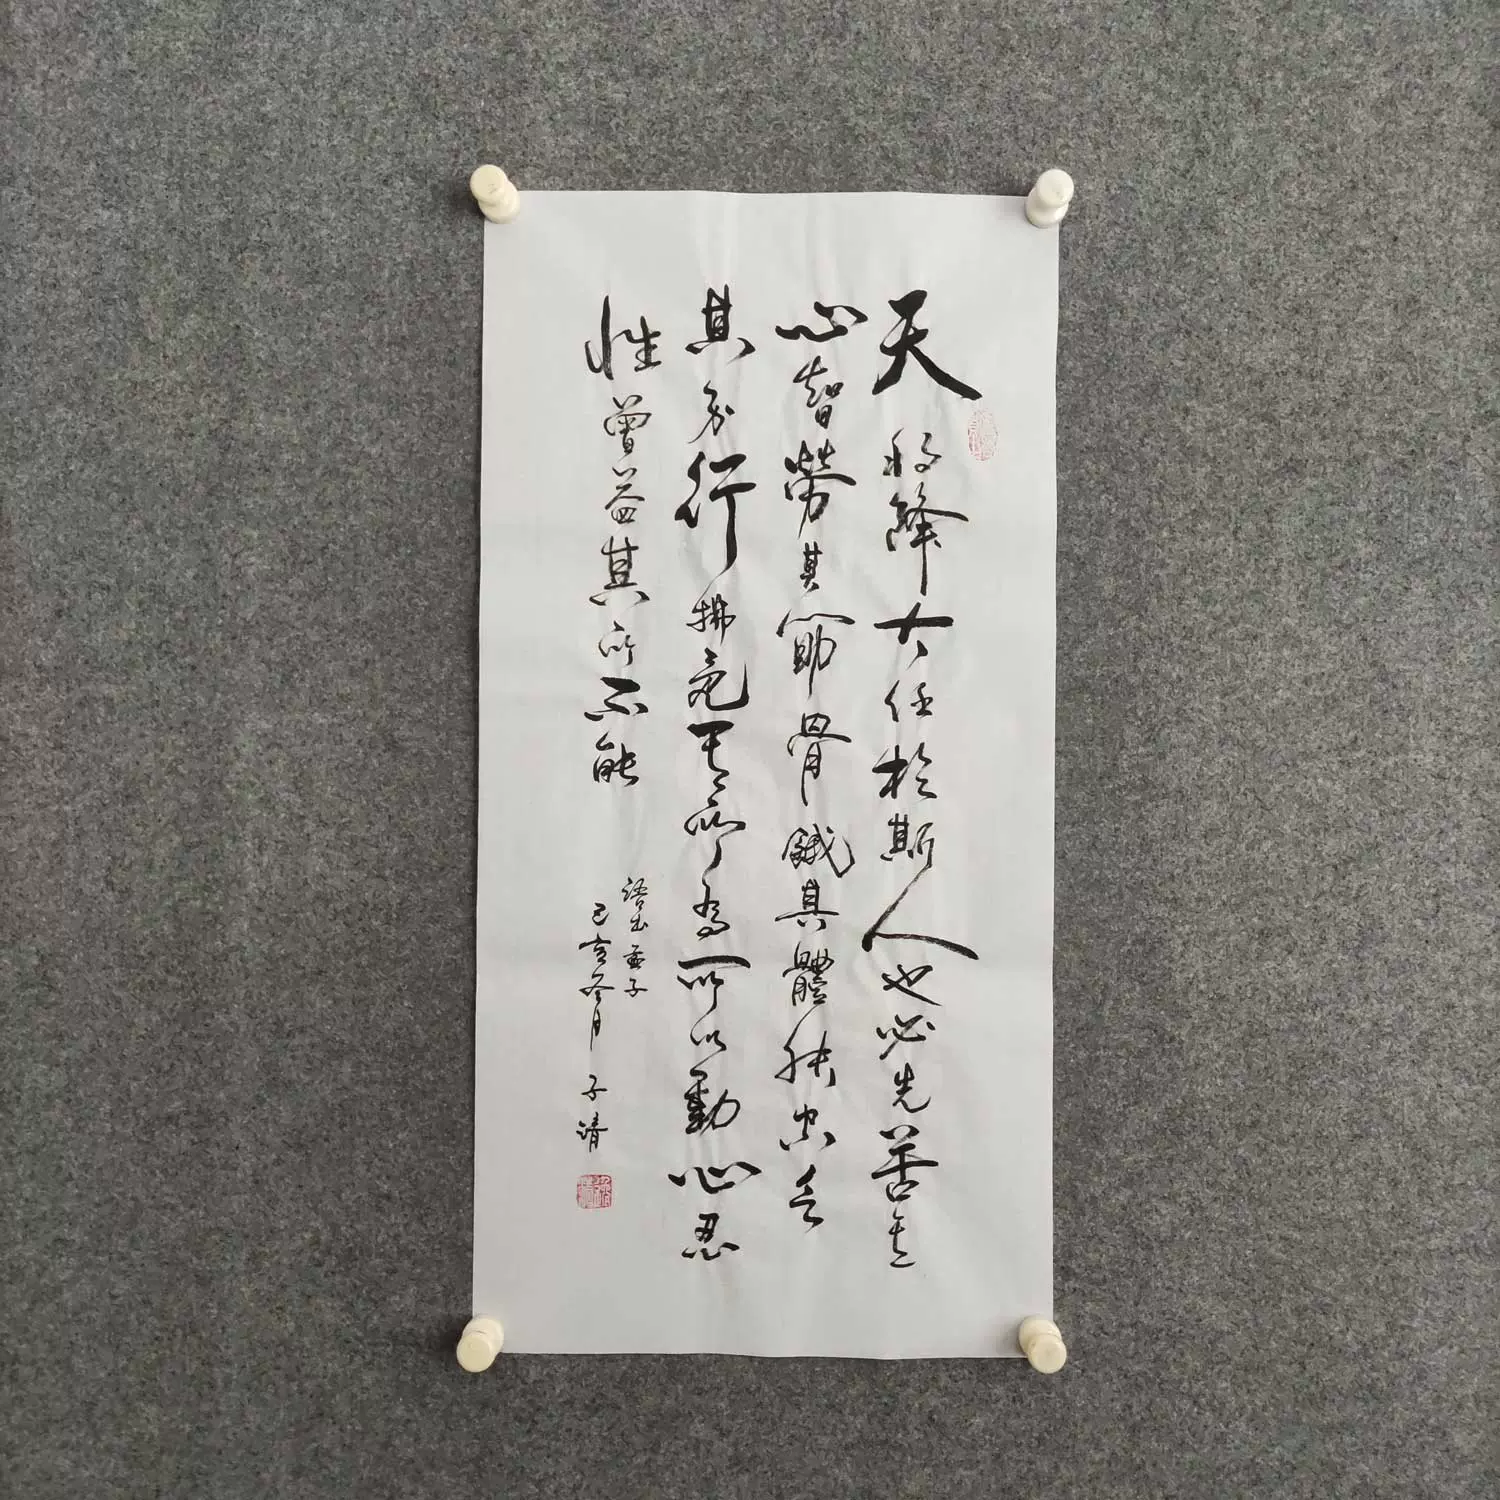 天將降大任於斯人也必先苦其
心智勞其筋骨餓其體膚空乏
其身行拂亂其所為所以動心忍
性曾益其所不能
語出孟子
己亥冬月 子清